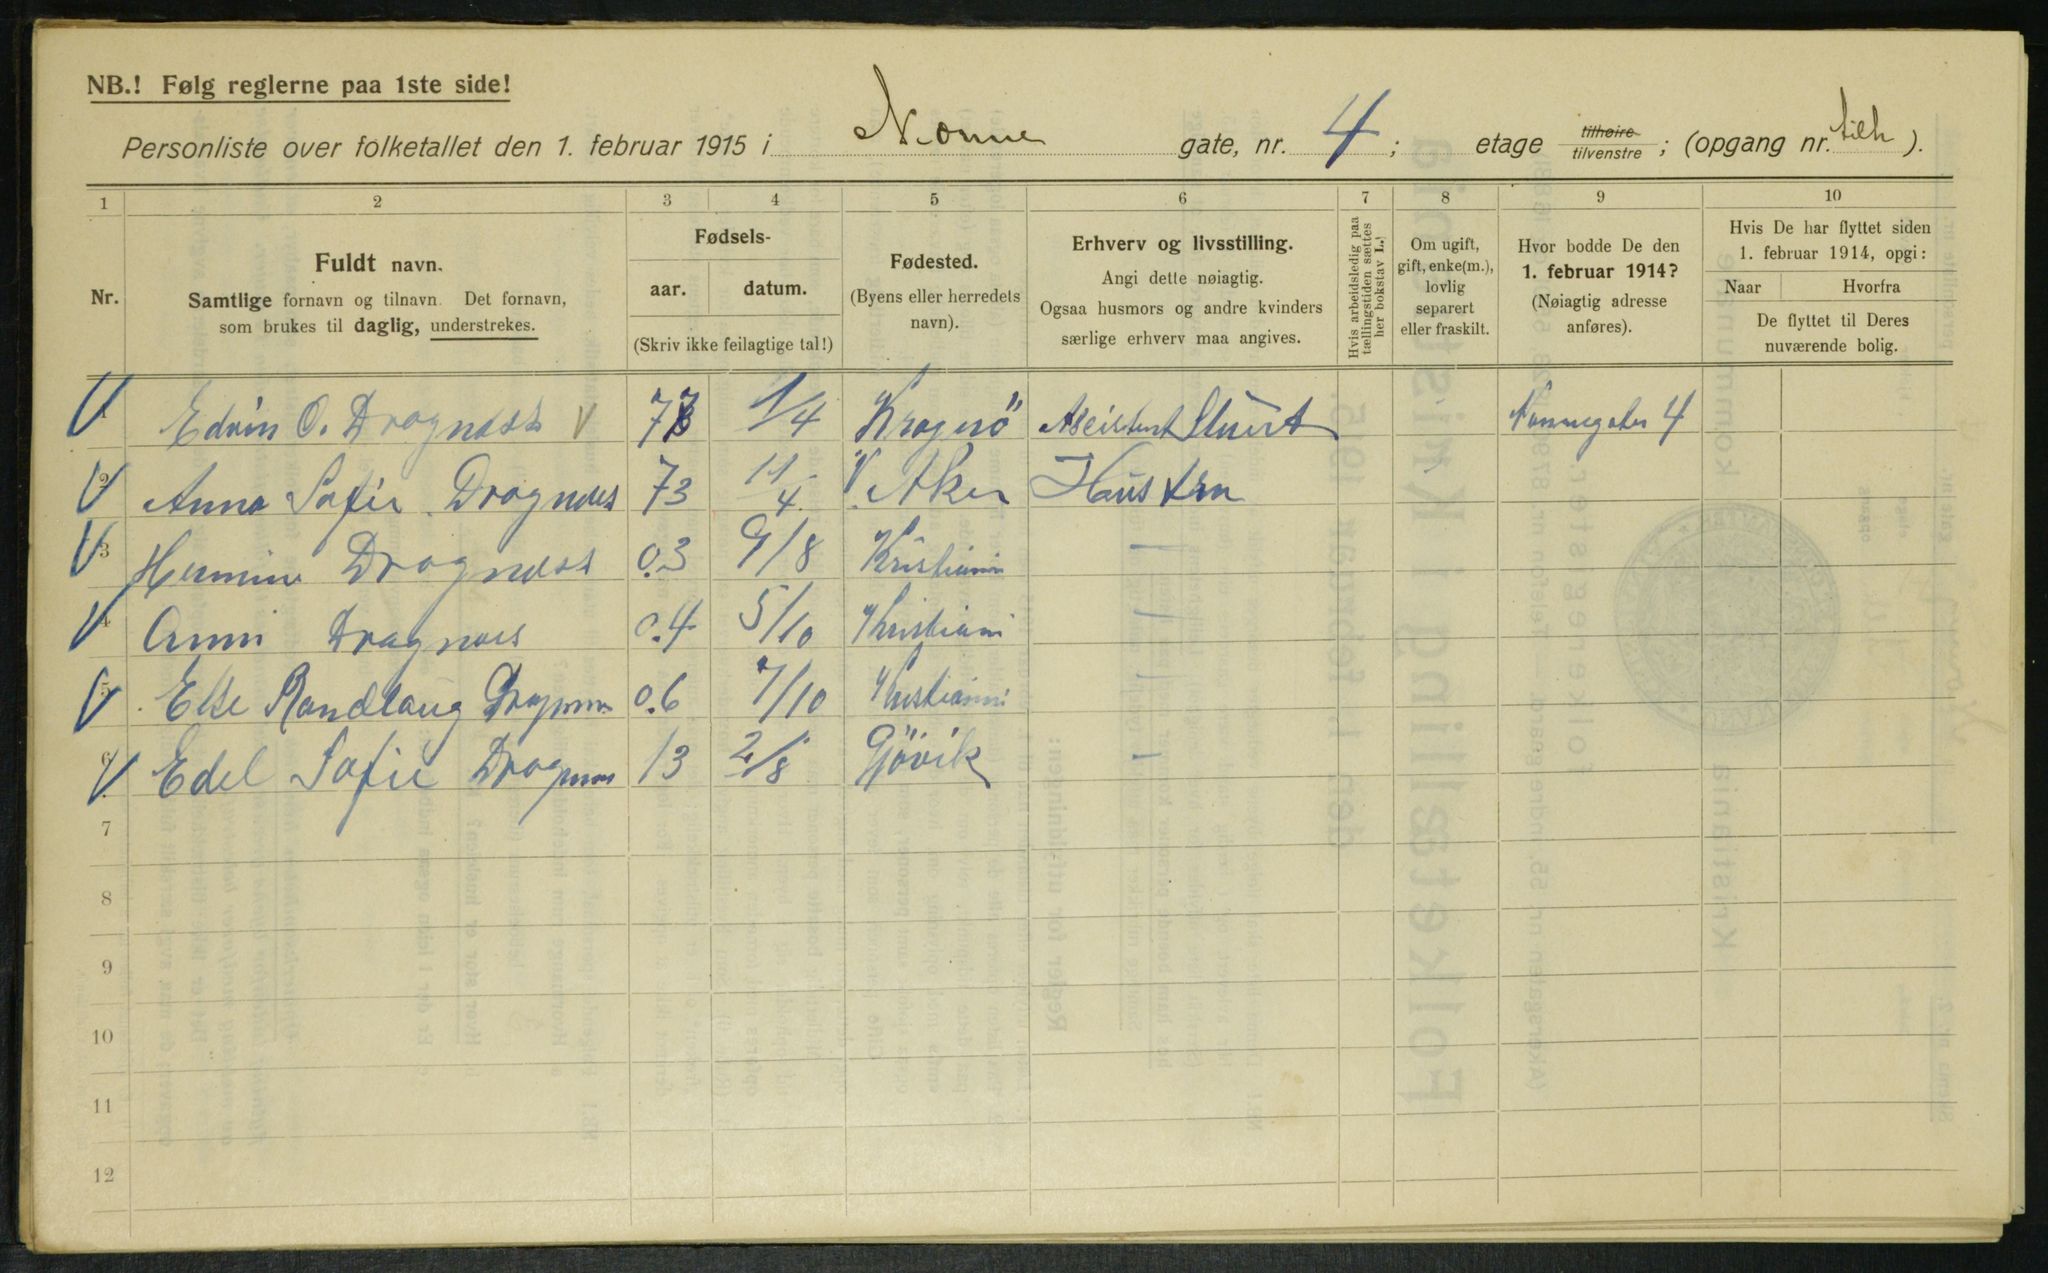 NB.! Følg reglerne paa 1ste side!
Personliste over folketallet den 1. februar 1915 i Nonne gate, nr. 4; etage tilhøire tilvenstre; (opgang nr. tilh).
1 2 3 4 5 6 7 8 9 10
Nr.
Fuldt navn.
Samtlige fornavn og tilnavn. Det fornavn,
som brukes til daglig, understrekes.
Fødsels-
aar. datum.
(Skriv ikke feilagtige tal!)
Fødested.
(Byens eller herredets
navn).
Erhverv og livsstilling.
Angi dette nøiagtig.
Ogsaa husmors og andre kvinders
særlige erhverv maa angives.
Hvis arbeidsledig paa
tællingstiden sættes
her bokstav L.
Om ugift,
gift, enke(m.),
lovlig
separert
eller fraskilt.
Hvor bodde De den
1. februar 1914?
(Nøiagtig adresse
anføres).
Hvis De har flyttet siden
1. februar 1914, opgi:
Naar Hvorfra
De flyttet til Deres
nuværende bolig.
1 Edvin O. Dragnæss V 73 1/4 Kragerö Assistent Nonnegaten 4
2 Anna Sofie Dragnæs 73 11/4 V. Aker Hustru
3 Hermine Dragnæss 03 9/8 Kristiania
4 Anni Dragnæs 04 5/10 Kristiani
5 Else Randlaug Dragnæs 06 7/10 Kristiania
6 Edel Sofie Dragnæs 13 2/8 Gjövik
7
8
9
10
11
12